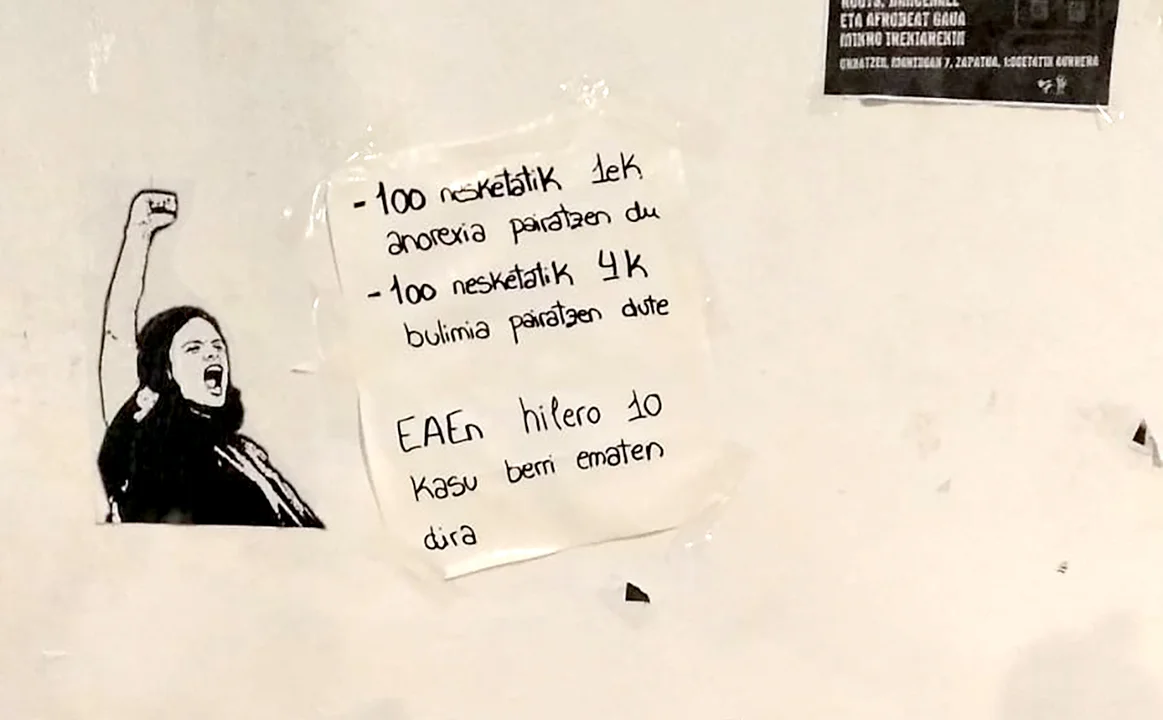 - 100 nesketatik 1ek
anorexia pairatzen du
- 100 nesketatik 4k
bulimia pairatzen dute
EAEn hilero 10
kasu berri ematen
dira
ROOTS, DANCEHALL
ETA AFROBEAT GAUA
MIKRO IREKIAREKIN
7, ZAPATUA,